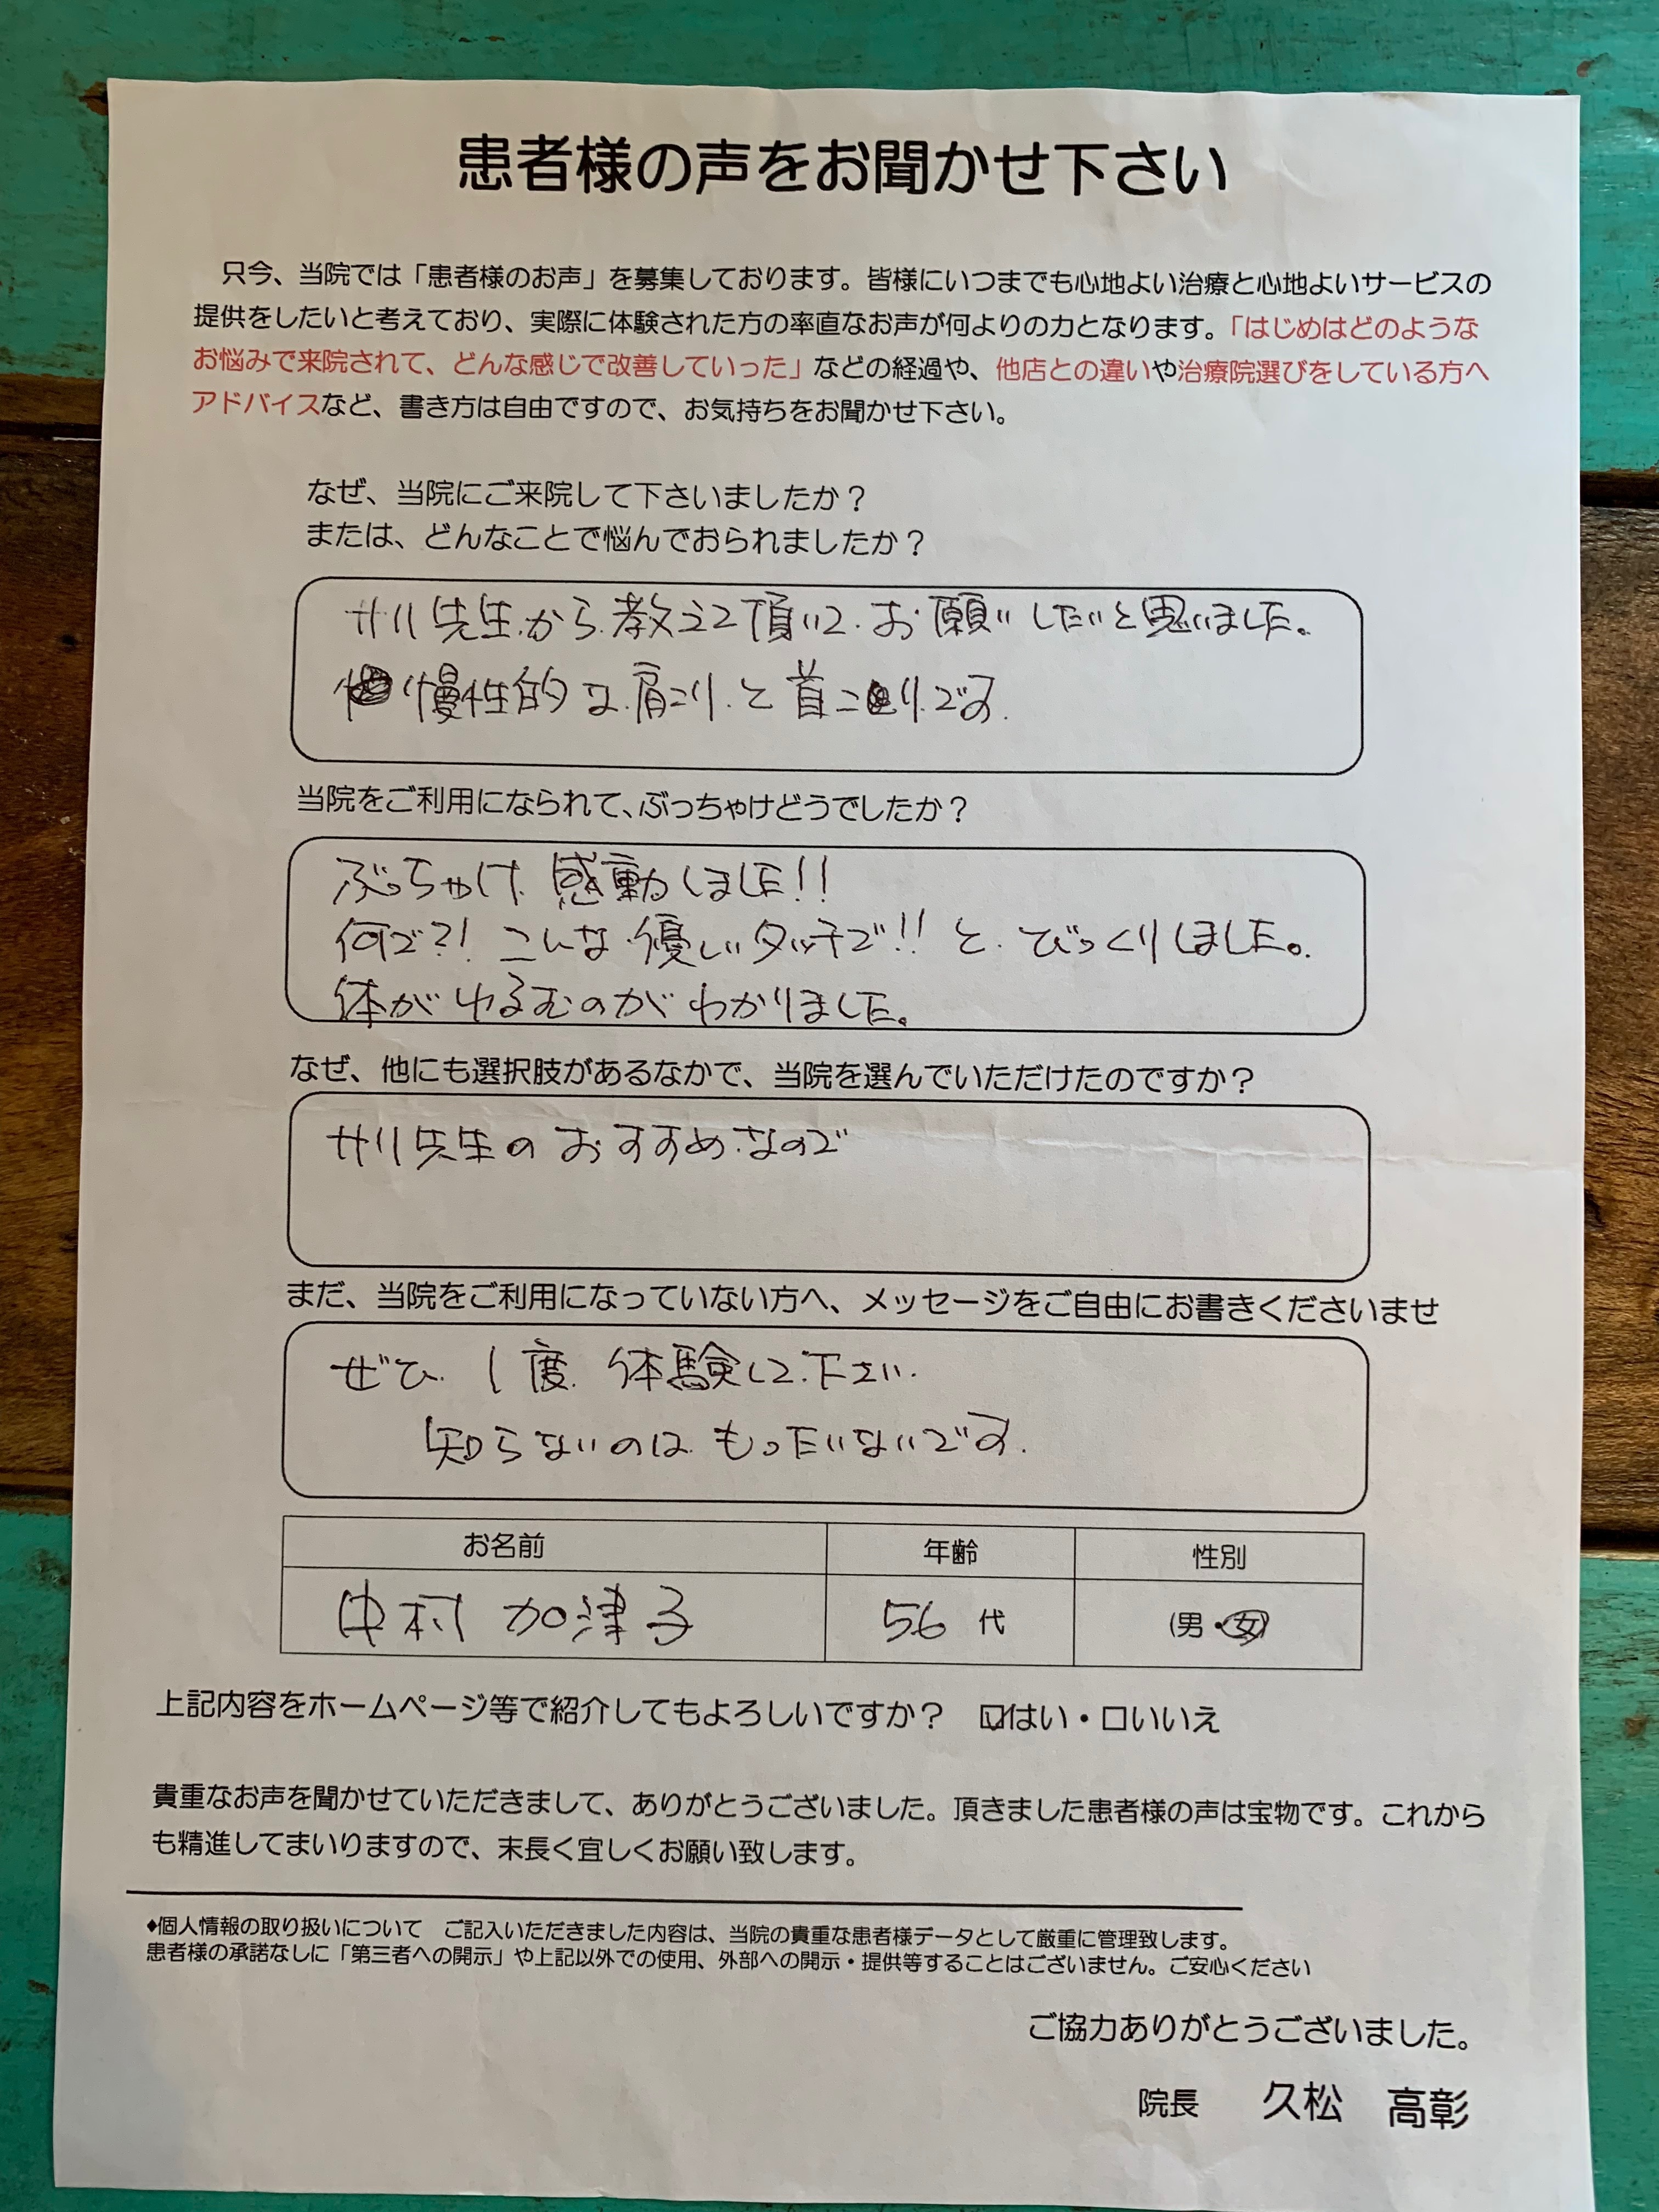 患者様の声をお聞かせ下さい
只今、当院では「患者様のお声」を募集しております。皆様にいつまでも心地よい治療と心地よいサービスの
提供をしたいと考えており、実際に体験された方の率直なお声が何よりの力となります。「はじめはどのような
お悩みで来院されて、どんな感じで改善していった」などの経過や、他店との違いや治療院選びをしている方へ
アドバイスなど、書き方は自由ですので、お気持ちをお聞かせ下さい。
なぜ、当院にご来院して下さいましたか？
または、どんなことで悩んでおられましたか？
サリ先生から教えて頂いて お願いしたいと思いました。
慢性的な肩こりと首こりです.
当院をご利用になられて、ぶっちゃけどうでしたか？
ぶっちゃけ 感動しました!!
何で?! こんな優しいタッチで!! と びっくりしました。
体がゆるむのがわかりました。
なぜ、他にも選択肢があるなかで、当院を選んでいただけたのですか？
サリ先生のおすすめなので
まだ、当院をご利用になっていない方へ、メッセージをご自由にお書きくださいませ
ぜひ 1度 体験して下さい.
知らないのは もったいないです.
お名前 年齢 性別
中村 加津子 56 代 (男・女)
上記内容をホームページ等で紹介してもよろしいですか？ ☑はい・□いいえ
貴重なお声を聞かせていただきまして、ありがとうございました。頂きました患者様の声は宝物です。これから
も精進してまいりますので、末長く宜しくお願い致します。
♦個人情報の取り扱いについて ご記入いただきました内容は、当院の貴重な患者様データとして厳重に管理致します。
患者様の承諾なしに「第三者への開示」や上記以外での使用、外部への開示・提供等することはございません。ご安心ください
ご協力ありがとうございました。
院長 久松 高彰